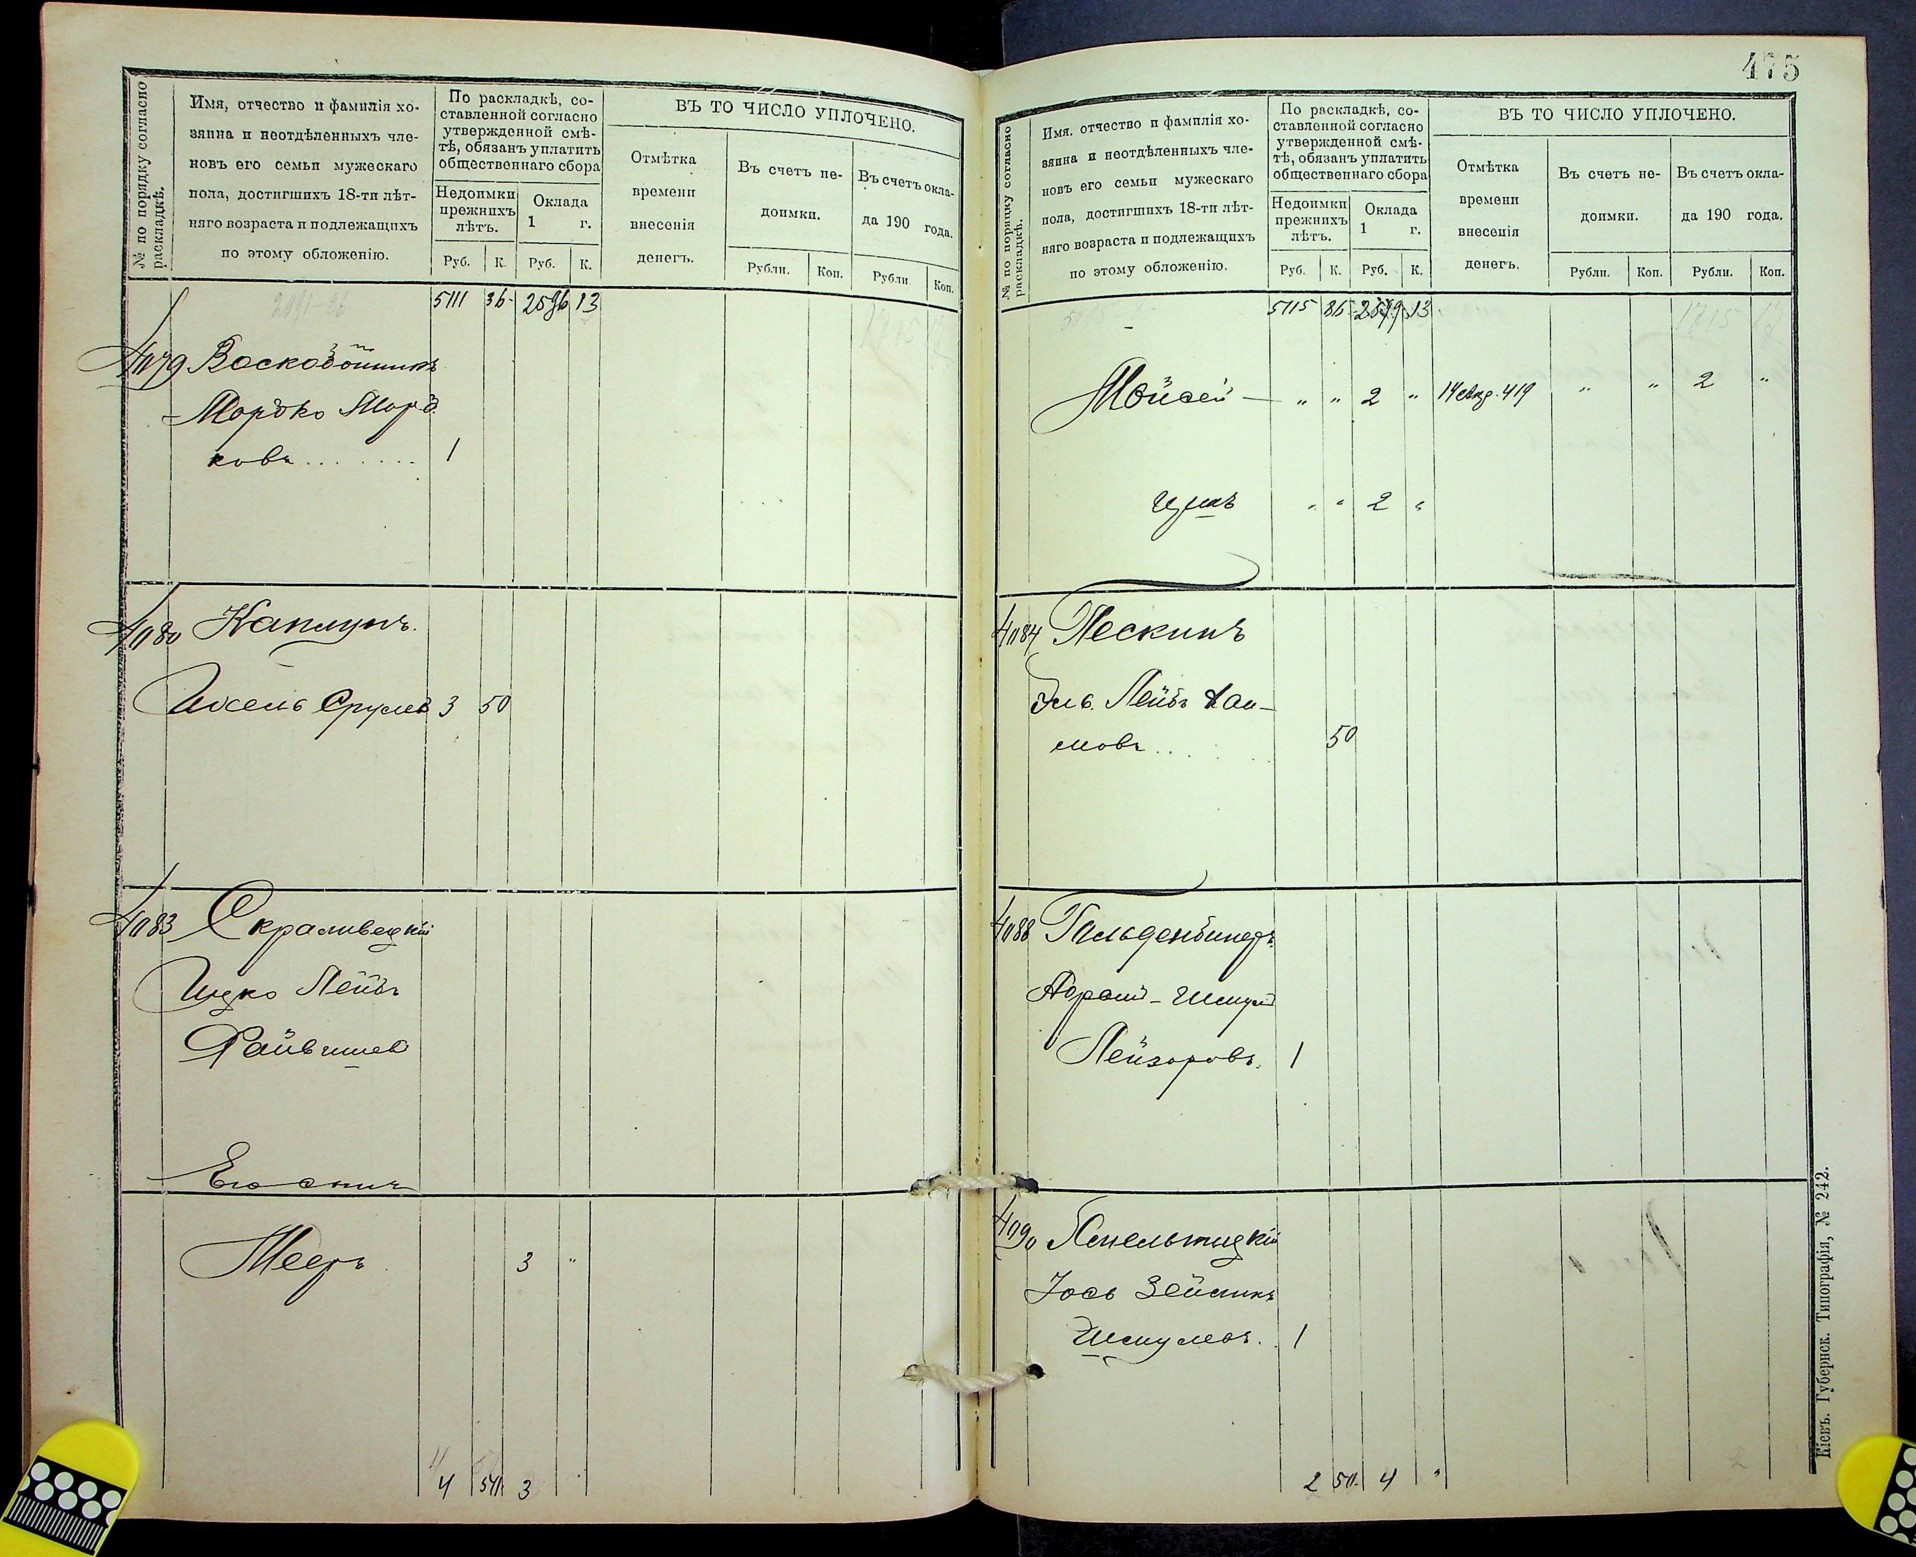 475
№ по порядку согласно раскладкѣ.
Имя, отчество и фамилія хо-
зяина и неотдѣленныхъ чле-
новъ его семьи мужескаго
пола, достигшихъ 18-ти лѣт-
няго возраста и подлежащихъ
по этому обложенію.
По раскладкѣ, со-
ставленной согласно
утвержденной смѣ-
тѣ, обязанъ уплатить
общественнаго сбора
Недоимки
прежнихъ
лѣтъ.
Оклада
1 г.
Руб. К. Руб. К.
ВЪ ТО ЧИСЛО УПЛОЧЕНО.
Отмѣтка
времени
внесенія
денегъ.
Въ счетъ не-
доимки.
Рубли. Коп.
Въ счетъ окла-
да 190 года.
Рубли Коп.
5111 36 2596 13
4079 Воскобойникъ
Мордко Морд
ковъ 1
4080 Каплунъ.
Иосель Срулев 3 50
4083 Скраливецкій
Ицко Лейбъ
Файвишев
Его сынъ
Мееръ 3 "
4 50 3
№ по порядку согласно раскладкѣ.
Имя. отчество и фамилія хо-
зяина и неотдѣленныхъ чле-
новъ его семьи мужескаго
пола, достигшихъ 18-ти лѣт-
няго возраста и подлежащихъ
по этому обложенію.
По раскладкѣ, со-
ставленной согласно
утвержденной смѣ-
тѣ, обязанъ уплатить
общественнаго сбора
Недоимки
прежнихъ
лѣтъ.
Оклада
1 г.
Руб. К. Руб. К.
ВЪ ТО ЧИСЛО УПЛОЧЕНО.
Отмѣтка
времени
внесенія
денегъ.
Въ счетъ не-
доимки.
Рубли. Коп.
Въ счетъ окла-
да 190 года.
Рубли. Коп.
5115 86 2599 13
1715
Мойсей — " " 2 " 419 " " 2 "
Ицикъ " " 2 "
4084 Пескинъ
Эль Лейбъ Хаи-
мовъ 50
4088 Гольденбергъ
Абрам - Шмул
Лейзоровъ. 1
4090 Хмельницкій
Іось Зейликъ
Шмулев. 1
2 50 4 "
Кіевъ. Губернск. Типографія, № 242.